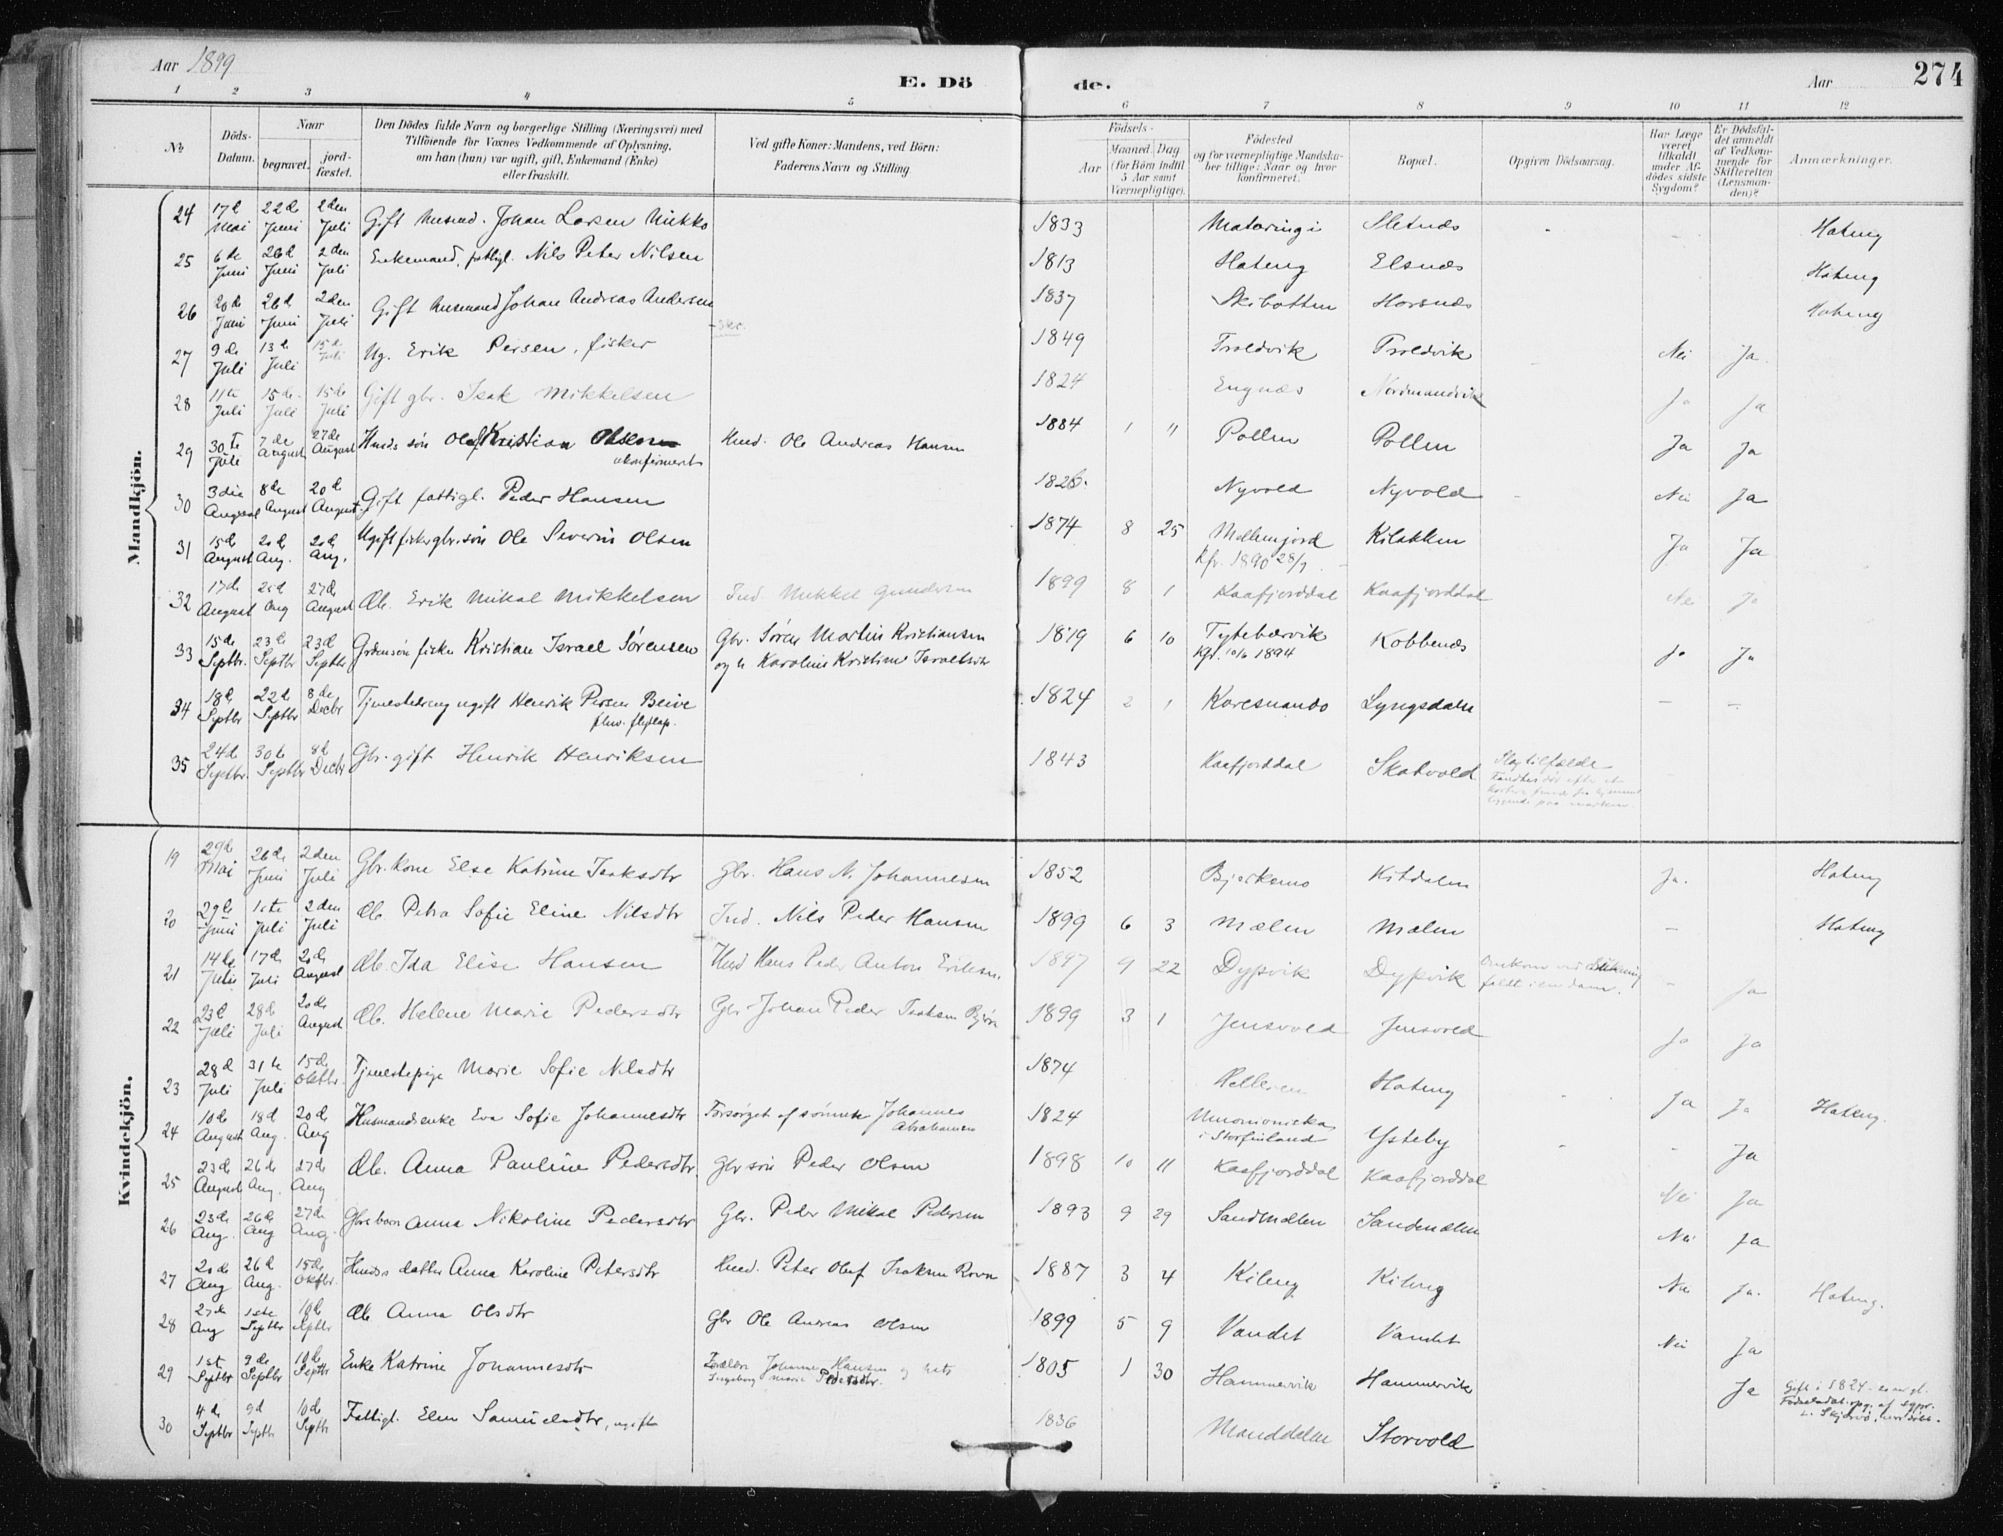 Aar 1899
E. Dö
de.
Aar
274
1 2 3 4 5 6 7 8 9 10 11 12
No
Döds-Datum.
Naar
begravet.
jord-fæstet.
Den Dödes fulde Navn og borgerlige Stilling (Næringsvei) med
Tilföiende for Voxnes Vedkommende af Oplysning,
om han (hun) var ugift, gift, Enkemand (Enke)
eller fraskilt.
Ved gifte Koner: Mandens, ved Börn:
Faderens Navn og Stilling
Födsels-
Aar
Maaned Dag
(for Börn indtil
5 Aar samt
Værnepligtige).
Födested
og for værnepligtige Mandska-
ber tillige: Naar og hvor
konfirmeret.
Bopæl.
Opgiven Dödsaarsag.
Har Læge
været
tilkaldt
under Af-
dödes sidste
Sygdom?
Er Dödsfal-
det anmeldt
af Vedkom-
mende for
Skifteretten
(Lensman-
den)?
Anmærkninger.
Mandkjön.
24 17d Mai 22de Juni 2den Juli Gift Husmd. Johan Larsen Mikko 1833 Mataringi Sletnæs Hateng
25 6te Juni 26d Juni 2den Juli Enkemand, fattigl. Nils Peter Nilsen 1813 Hateng Elsnæs Hateng
26 20d Juni 26d Juni 2den Juli Gift Husmand Johan Andreas Andersen 1837 Skibotten Horsnæs Hateng
27 9de Juli 13d Juli 15d Juli Ug. Erik Persen, fisker 1849 Troldvik Troldvik Nei Ja.
28 11te Juli 15de Juli 15de Juli Gift gbr. Isak Mikkelsen 1824 Engnæs Nordmandsvik Ja Ja
29 30te Juli 7de August 27de August Husds søn Olaf Kristian Olsen Husd. Ole Andreas Hansen 1884 1 " Pollen Pollen Ja Ja
ukonfirmeret
30 3die August 8de August 20d August Gift fattigl. Peder Hansen 1826. Nyvold Nyvold Nei Ja
31 15d August 20d Aug. 20d Aug. Ugift fisker gbr. søn Ole Severin Olsen 1874 8 25 Mellemjord Kilakken Ja Ja
Kfr. 1890 28/7
32 17d August 25d Aug 27d August Æb. Erik Mikal Mikkelsen Ind. Mikkel Gundersen 1899 8 1 Kaafjorddal Kaafjorddal Nei Ja
33 15de Septbr. 23d Septbr 23d Septbr Grdm.søn fisker Kristian Israel Sørensen Gbr. Søren Martin Kristiansen 1879 6 10 Tytebærvik Kobbenæs Ja Ja
og h Karoline Kristine Israelsdtr Kfr. 10/6 1894
34 18d Septbr 22d Septbr 8de Decbr Tjenestedreng ugift Henrik Persen Beive 1824 2 1 Karesuando Lyngsdalen
35 24d Septbr. 30te Septbr 8d Decbr Gbr. gift Henrik Henriksen 1843 Kaafjorddal Skatvold Slagtilfælde
Kvindekjön.
19 29d Mai 26de Juni 2den Juli Gbr. kone Else Katrine Isaksdtr Gbr. Hans N. Johannesen 1852 Bjerkemo Kitdalen Ja. Hateng
20 29d Juni 1ste Juli 2den Juli Æb. Petra Sofie Eline Nilsdtr Ind. Nils Peder Hansen 1899 6 3 Mælen Mælen Hateng
21 14de Juli 17de Juli 20de August Æb. Ida Elise Hansen Husd Hans Peder Anton Eriksen. 1897 9 22 Dypvik Dypvik Omkom ved Ja
faldt i en dam.
22 23d Juli 28d Juli 20de August Æb. Helene Marie Pedersdtr Gbr Johan Peder Isaksen 1899 3 1 Jensvold Jensvold Ja Ja
23 28d Juli 31te Juli 15d Oktbr. Tjenestepige Marie Sofie Nilsdtr 1874 Helleren Hateng Ja Ja Hateng.
24 10de August 18d Aug. 20d Aug Husmandsenke Eva Sofie Johannesdtr Forsørget af sønnen Johannes 1824 Muonioniska Ysteby Ja
Abrahamsen i Storfinland
25 23d August 26de Aug. 27de Aug Æb. Anna Pauline Pedersdtr. Gbr søn Peder Olsen 1898 10 11 Kaafjorddal Kaafjorddal Nei Ja
26 23de Aug. 26de Aug 27de Aug. Gbrs barn Anna Nikoline Pedersdtr Gbr. Peder Mikal Pedersen 1893 9 29 Sandmælen Sandmælen Nei Ja
27 20de Aug 26d Aug. 15de Oktbr. Husds datter Anna Karoline Petersdtr Husd. Peter Oluf Isaksen Rovn 1887 3 4 Kileng Kileng Nei Ja. Hateng.
28 27de Aug 1ste Septbr 10d Septbr Æb Anna Olsdtr Gbr Ole Andreas Olsen 1899 5 9 Vandet Vandet Nei Ja
29 1ste Septbr 9de Septbr 10de Septbr Enke Katrine Johannesdtr Forældre Johannes Hansen og 1805 1 30 Hammervik Hammervik Ja Gift i 1824
Ingeborg Marie Pedersdtr.
30 4de Septbr 9d Septb 10de Septb Fattigl. Elen Samuelsdtr, ugift 1836 Manddalen Storvold